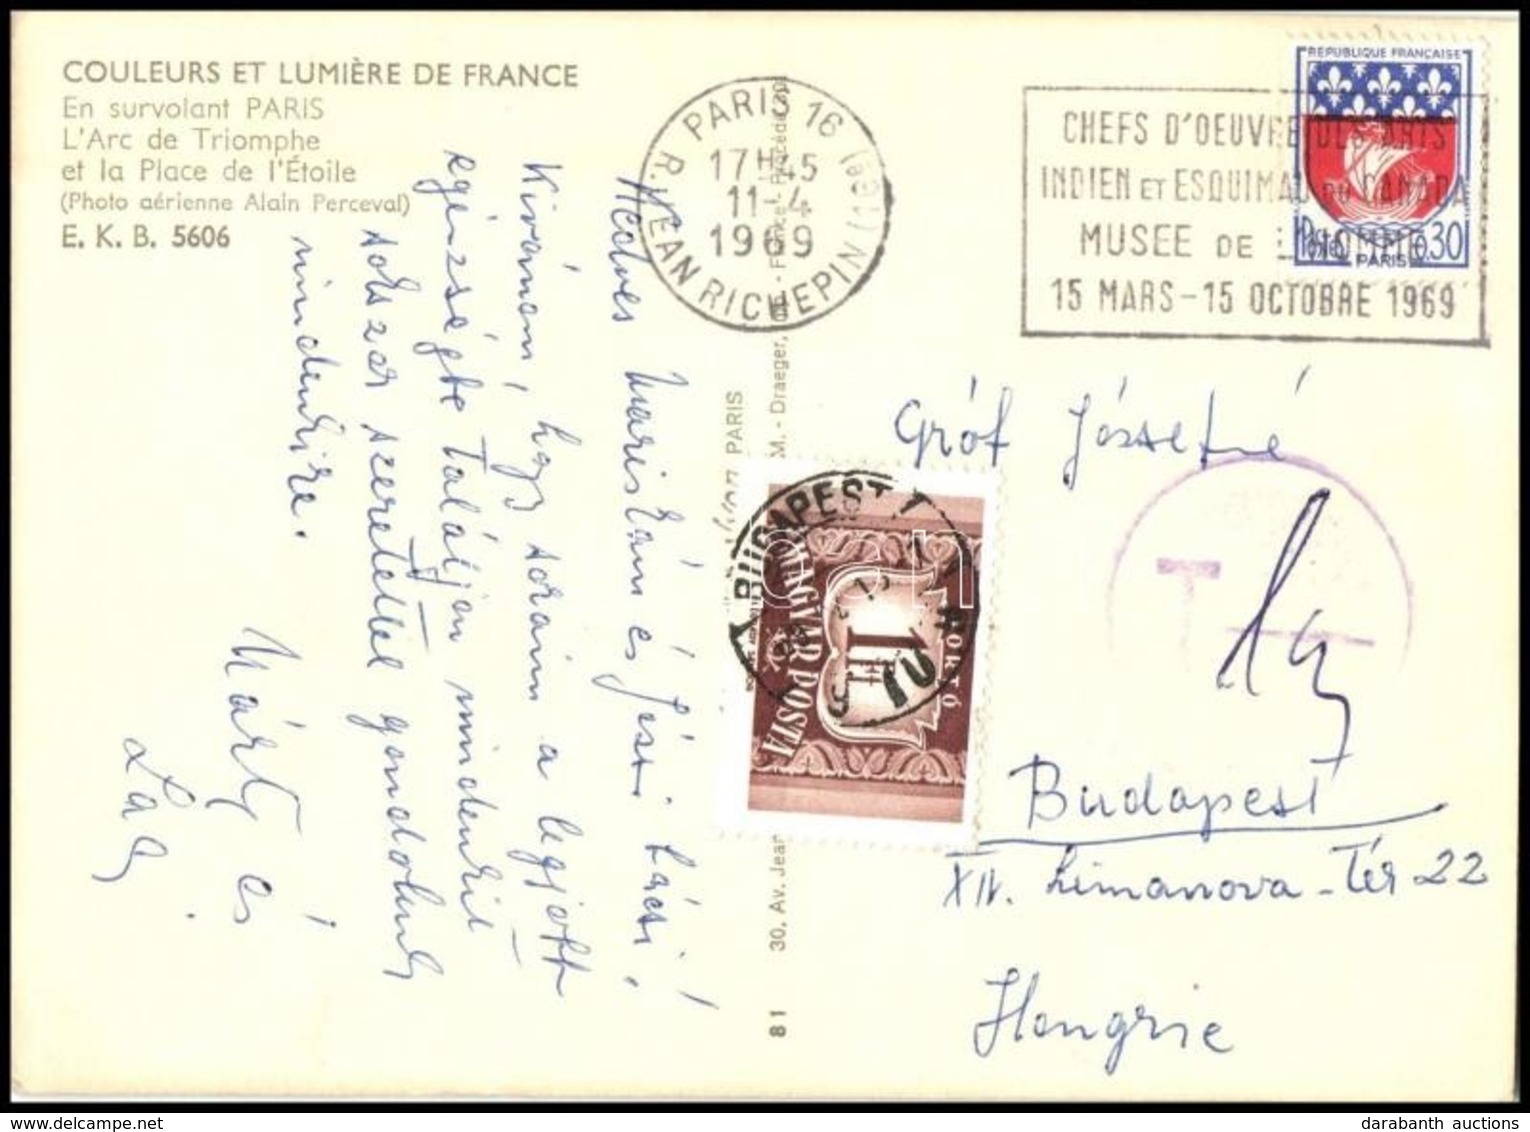 COULEURS ET LUMIÈRE DE FRANCE
En survolant PARIS
L'Arc de Triomphe
et la Place de l'Étoile
(Photo aérienne Alain Perceval)
E. K. B. 5606
PARIS 16
17H45
11-4
1969
R. JEAN RICHEPIN (16e)
CHEFS D'OEUVRE DES ARTS
INDIEN ET ESQUIMAU DU CANADA
MUSEE DE L'HOMME
15 MARS - 15 OCTOBRE 1969
REPUBLIQUE FRANÇAISE
PARIS
0.30
Kedves Mariskám és Jóssi bácsi!
Kívánom, hogy soraim a legjobb
egészségbe találjon mindenkit,
sokszor szeretettel gondolunk
mindnire.
Márty és
Laly
Gróf Jóssefné
T
Budapest
XIV. Limanova-tér 22
Hongrie
BUDAPEST
MAGYAR POSTA
PORTÓ
1 Ft
PARIS
M. - Draeger,
30, Av. Jean
81
darabanth auctions